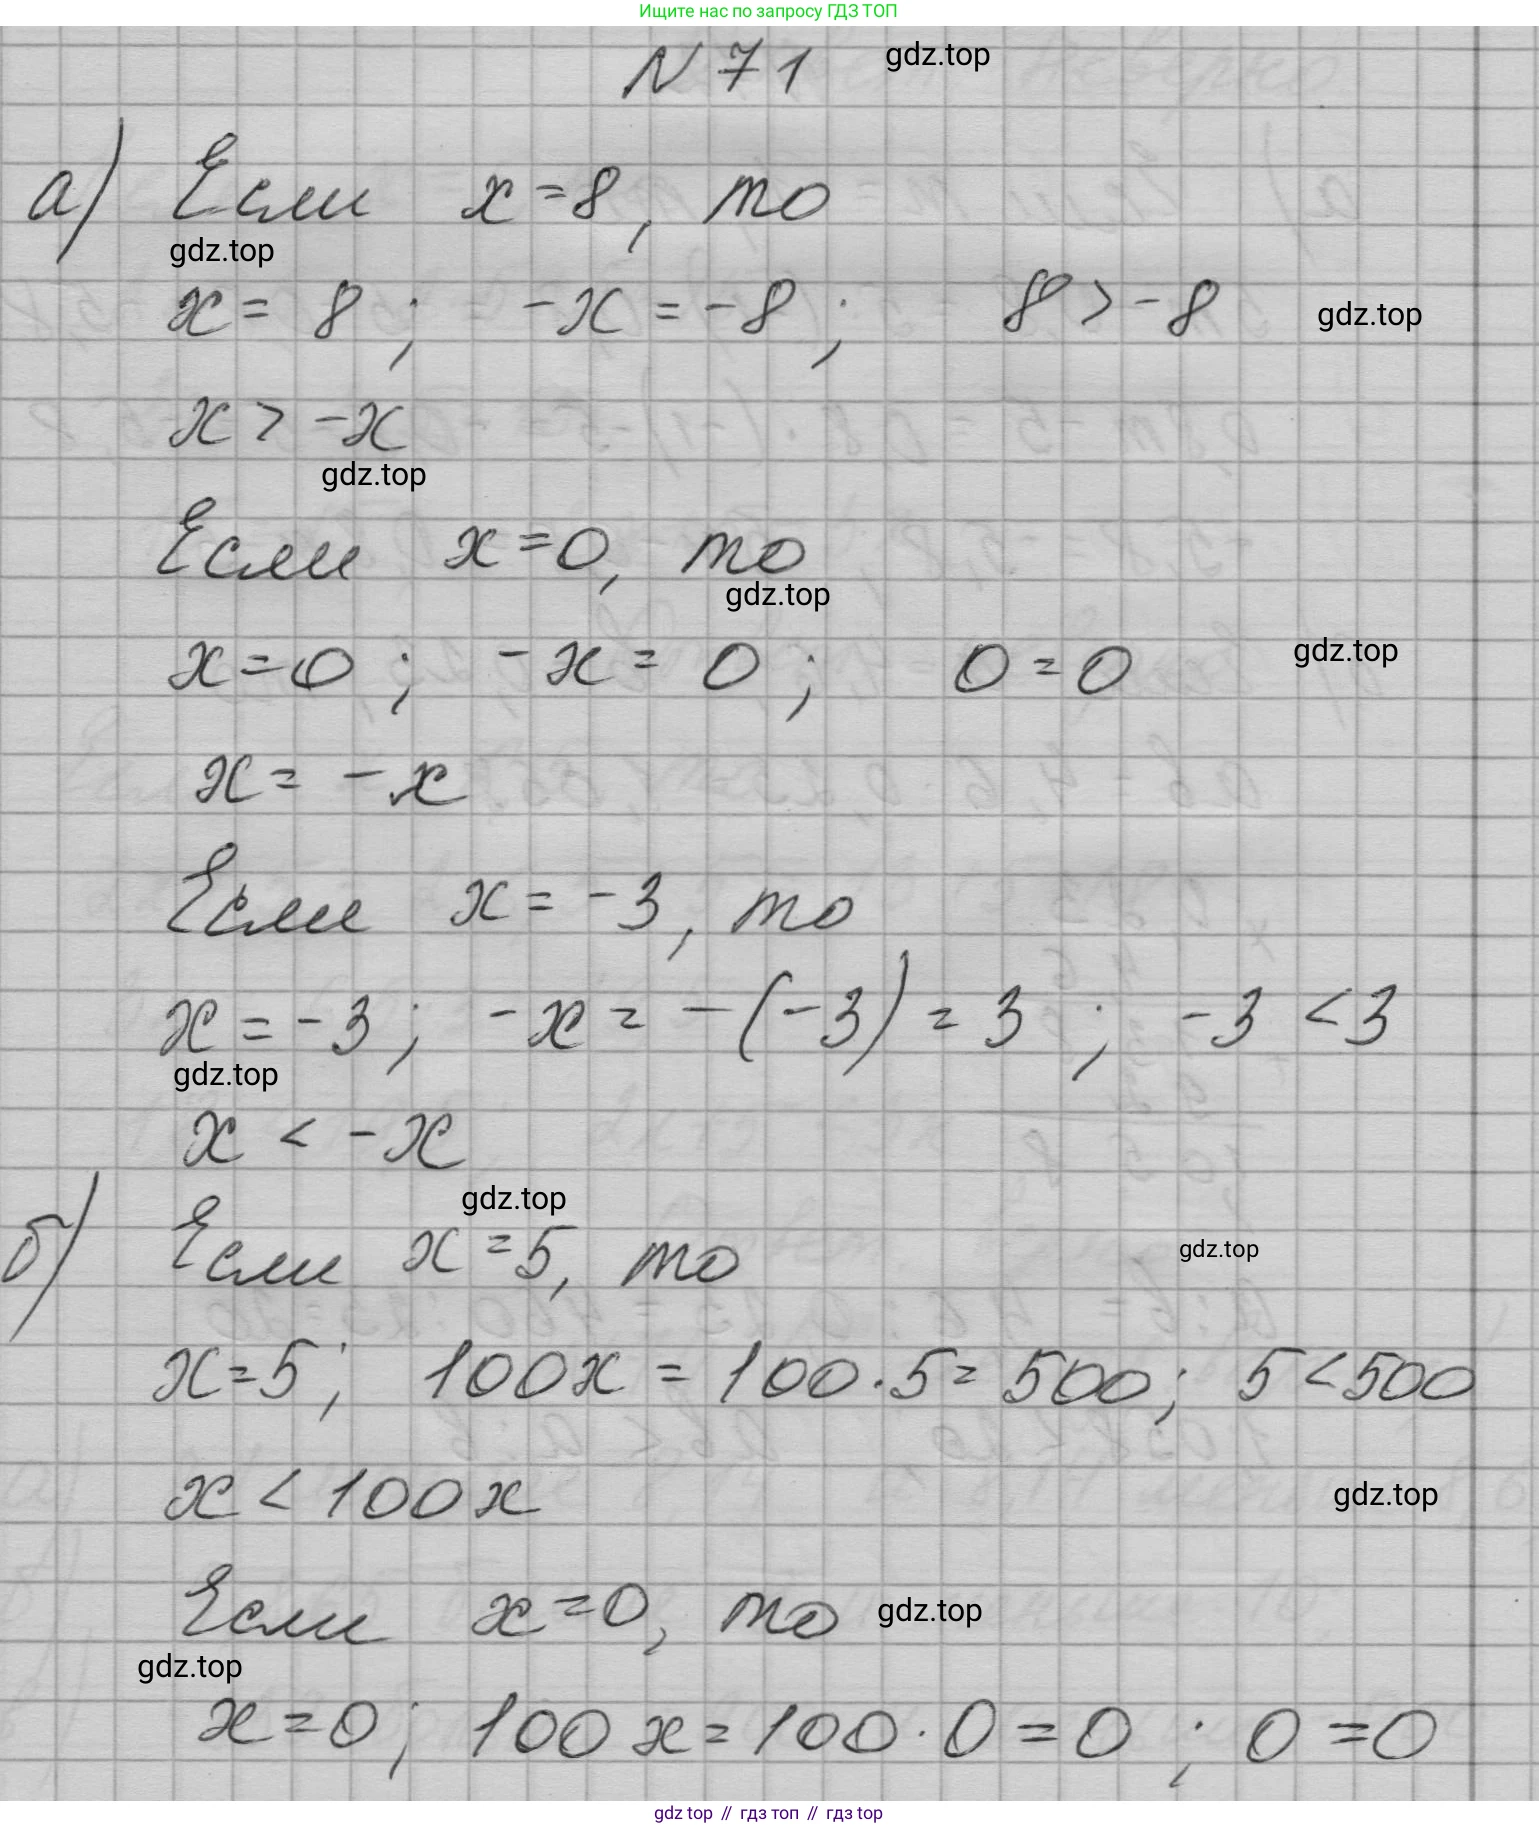 Ищите нас по запросу ГДЗ ТОП
N 71 gdz.top
а) Если x=8, то
gdz.top
x = 8; -x = -8; 8 > -8 gdz.top
x > -x
gdz.top
Если x=0, то
gdz.top
x=0; -x = 0; 0=0 gdz.top
x = -x
Если x = -3, то
x = -3; -x = -(-3) = 3; -3 < 3
gdz.top
x < -x
gdz.top
б) Если x = 5, то gdz.top
x=5; 100x = 100·5 = 500; 5<500
x < 100x gdz.top
Если x=0, то gdz.top
gdz.top
x=0; 100x = 100·0 = 0; 0=0
gdz top // гдз топ // гдз top